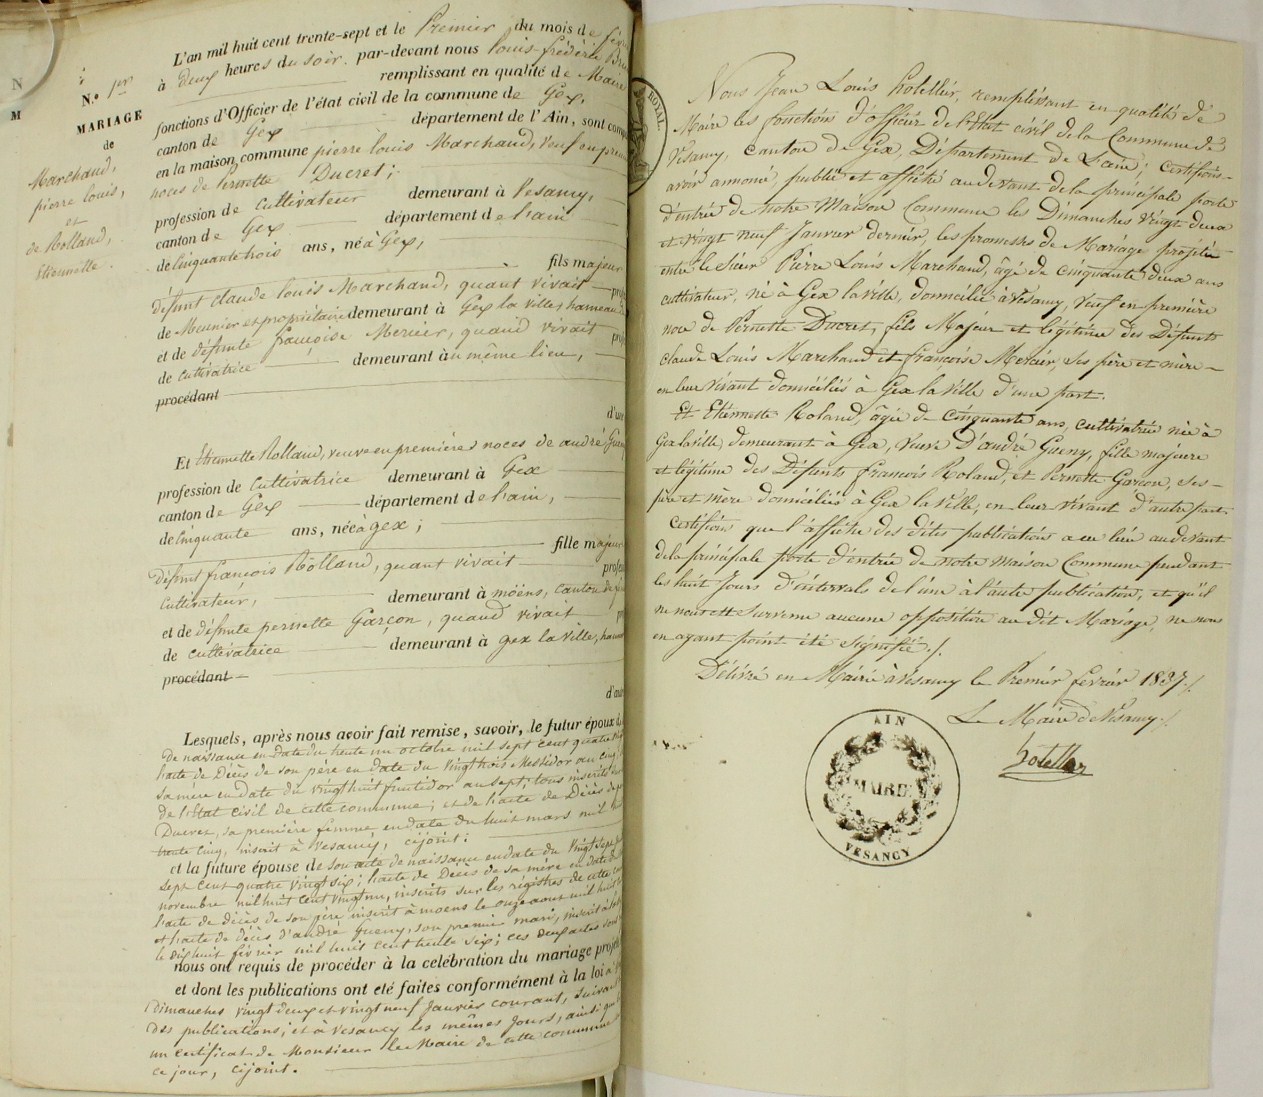 N
M
N.o 1er
MARIAGE
de
Marchand,
pierre louis,
et
de Rolland,
Etiennette.
L'an mil huit cent trente-sept et le Premier du mois de
à deux heures du soir. par-devant nous louis-frédéric
remplissant en qualité de Maire
fonctions d'Officier de l'état civil de la commune de Gex,
canton de Gex département de l'Ain, sont
en la maison commune pierre louis Marchand, veuf en
noces de Pernette Ducret;
profession de cultivateur demeurant à Vesancy,
canton de Gex département de l'ain
de Cinquante trois ans, né à Gex,
fils majeur
défunt claude louis Marchand, quant vivait
de Meunier et propriétaire demeurant à Gex la ville, hameau
et de défunte françoise Mercier, quand vivait
de cultivatrice demeurant au même lieu,
procédant
Et Etiennette Rolland, veuve en premières noces de andré
profession de Cultivatrice demeurant à Gex
canton de Gex département de l'ain,
de Cinquante ans, née à gex;
fille majeure
défunt françois Rolland, quant vivait
cultivateur, demeurant à möens, canton de
et de défunte pernette Garçon, quand vivait
de cultivatrice demeurant à gex la ville,
procédant
Lesquels, après nous avoir fait remise, savoir, le futur époux
De naissance en date du trente un octobre mil sept cent quatre
l'acte de Décès de son père en date du Vingt trois Messidor an cinq,
sa mère en date du Vingt huit fructidor an sept; tous inscrits
de l'Etat civil de cette commune; et de l'acte de Décès de
Ducret, sa première femme en date du huit mars mil
trente cinq, inscrit à Vesancy, cijoint:
et la future épouse de son acte de naissance en date du Vingt sept
sept cent quatre vingt six; l'acte de Décès de sa mère en date
novembre mil huit cent vingt un, inscrits sur les régistres de cette
l'acte de décès de son père inscrit à moens le onze aout mil huit
et l'acte de décès d'andré Gueny, son premier mari, inscrit à
le dix huit février mil huit cent trente six; ces deux actes
nous ont requis de procéder à la célébration du mariage projeté
et dont les publications ont été faites conformément à la loi
Dimanches vingt deux et vingt neuf Janvier courant, suivant
des publications; et à Vesancy les mêmes jours, ainsi que
un certificat de Monsieur le Maire de cette commune
ce jour, cijoint.
ROYAL
Nous Jean Louis hotellier, remplissant en qualité de
Maire les fonctions d'officier de l'Etat civil de la Commune de
Vesancy, canton de Gex, Département de L'ain; certifions
avoir annoncé, publié et affiché au devant de la principale porte
d'entrée de notre Maison Commune les Dimanches vingt deux
et vingt neuf Janvier dernier, les promesses de Mariage projetée
entre le Sieur Pierre Louis Marchand, âgé de cinquante deux ans
cultivateur, né à Gex la ville, domicilié à Vesancy, veuf en première
noce de Pernette Ducret, fils Majeur et légitime des Défunts
Claude Louis Marchand et françoise Mercier, ses père et mère
en leur vivant domiciliés à Gex la ville d'une part.
Et Etiennette Roland, âgée de cinquante ans, cultivatrice née à
Gex la ville, demeurant à Gex, veuve D'andré Gueny, fille majeure
et légitime des Défunts francois Roland, et Pernette Garçon, ses
père et mère domiciliés à Gex la Ville, en leur vivant d'autre part
certifions que l'affiche des dites publications a eu lieu au devant
de la principale porte d'entrée de notre Maison Commune pendant
les huit Jours d'intervale de l'une à l'autre publication, et qu'il
ne nous est survenu aucune opposition au dit Mariage, ne nous
en ayant point été signifié./.
Délivré en Mairie à Vesancy le Premier février 1837./.
Le Maire de Vesancy./.
hotellier
AIN
MAIRIE
VESANCY